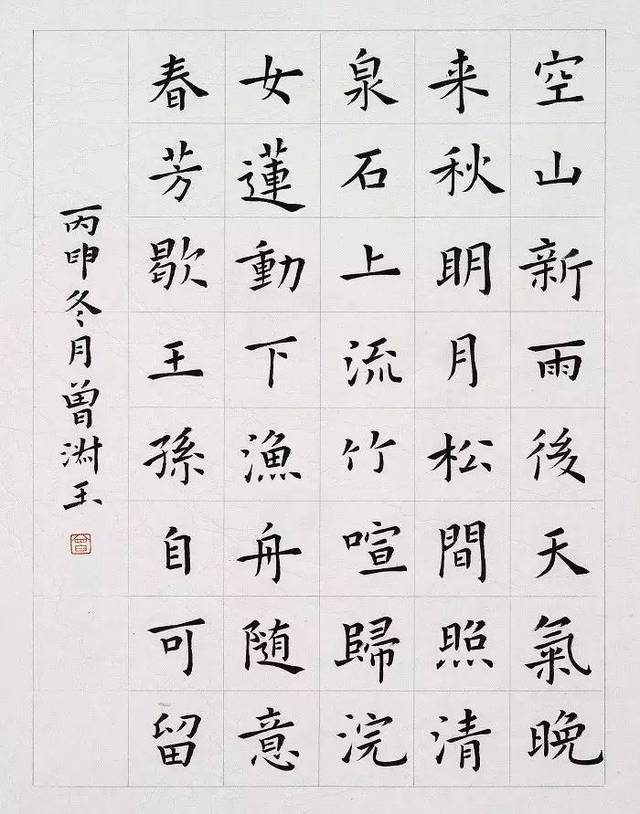 空山新雨後天氣晚
来秋明月松間照清
泉石上流竹喧歸浣
女蓮動下漁舟随意
春芳歇王孫自可留
丙申冬月曾玉
曾